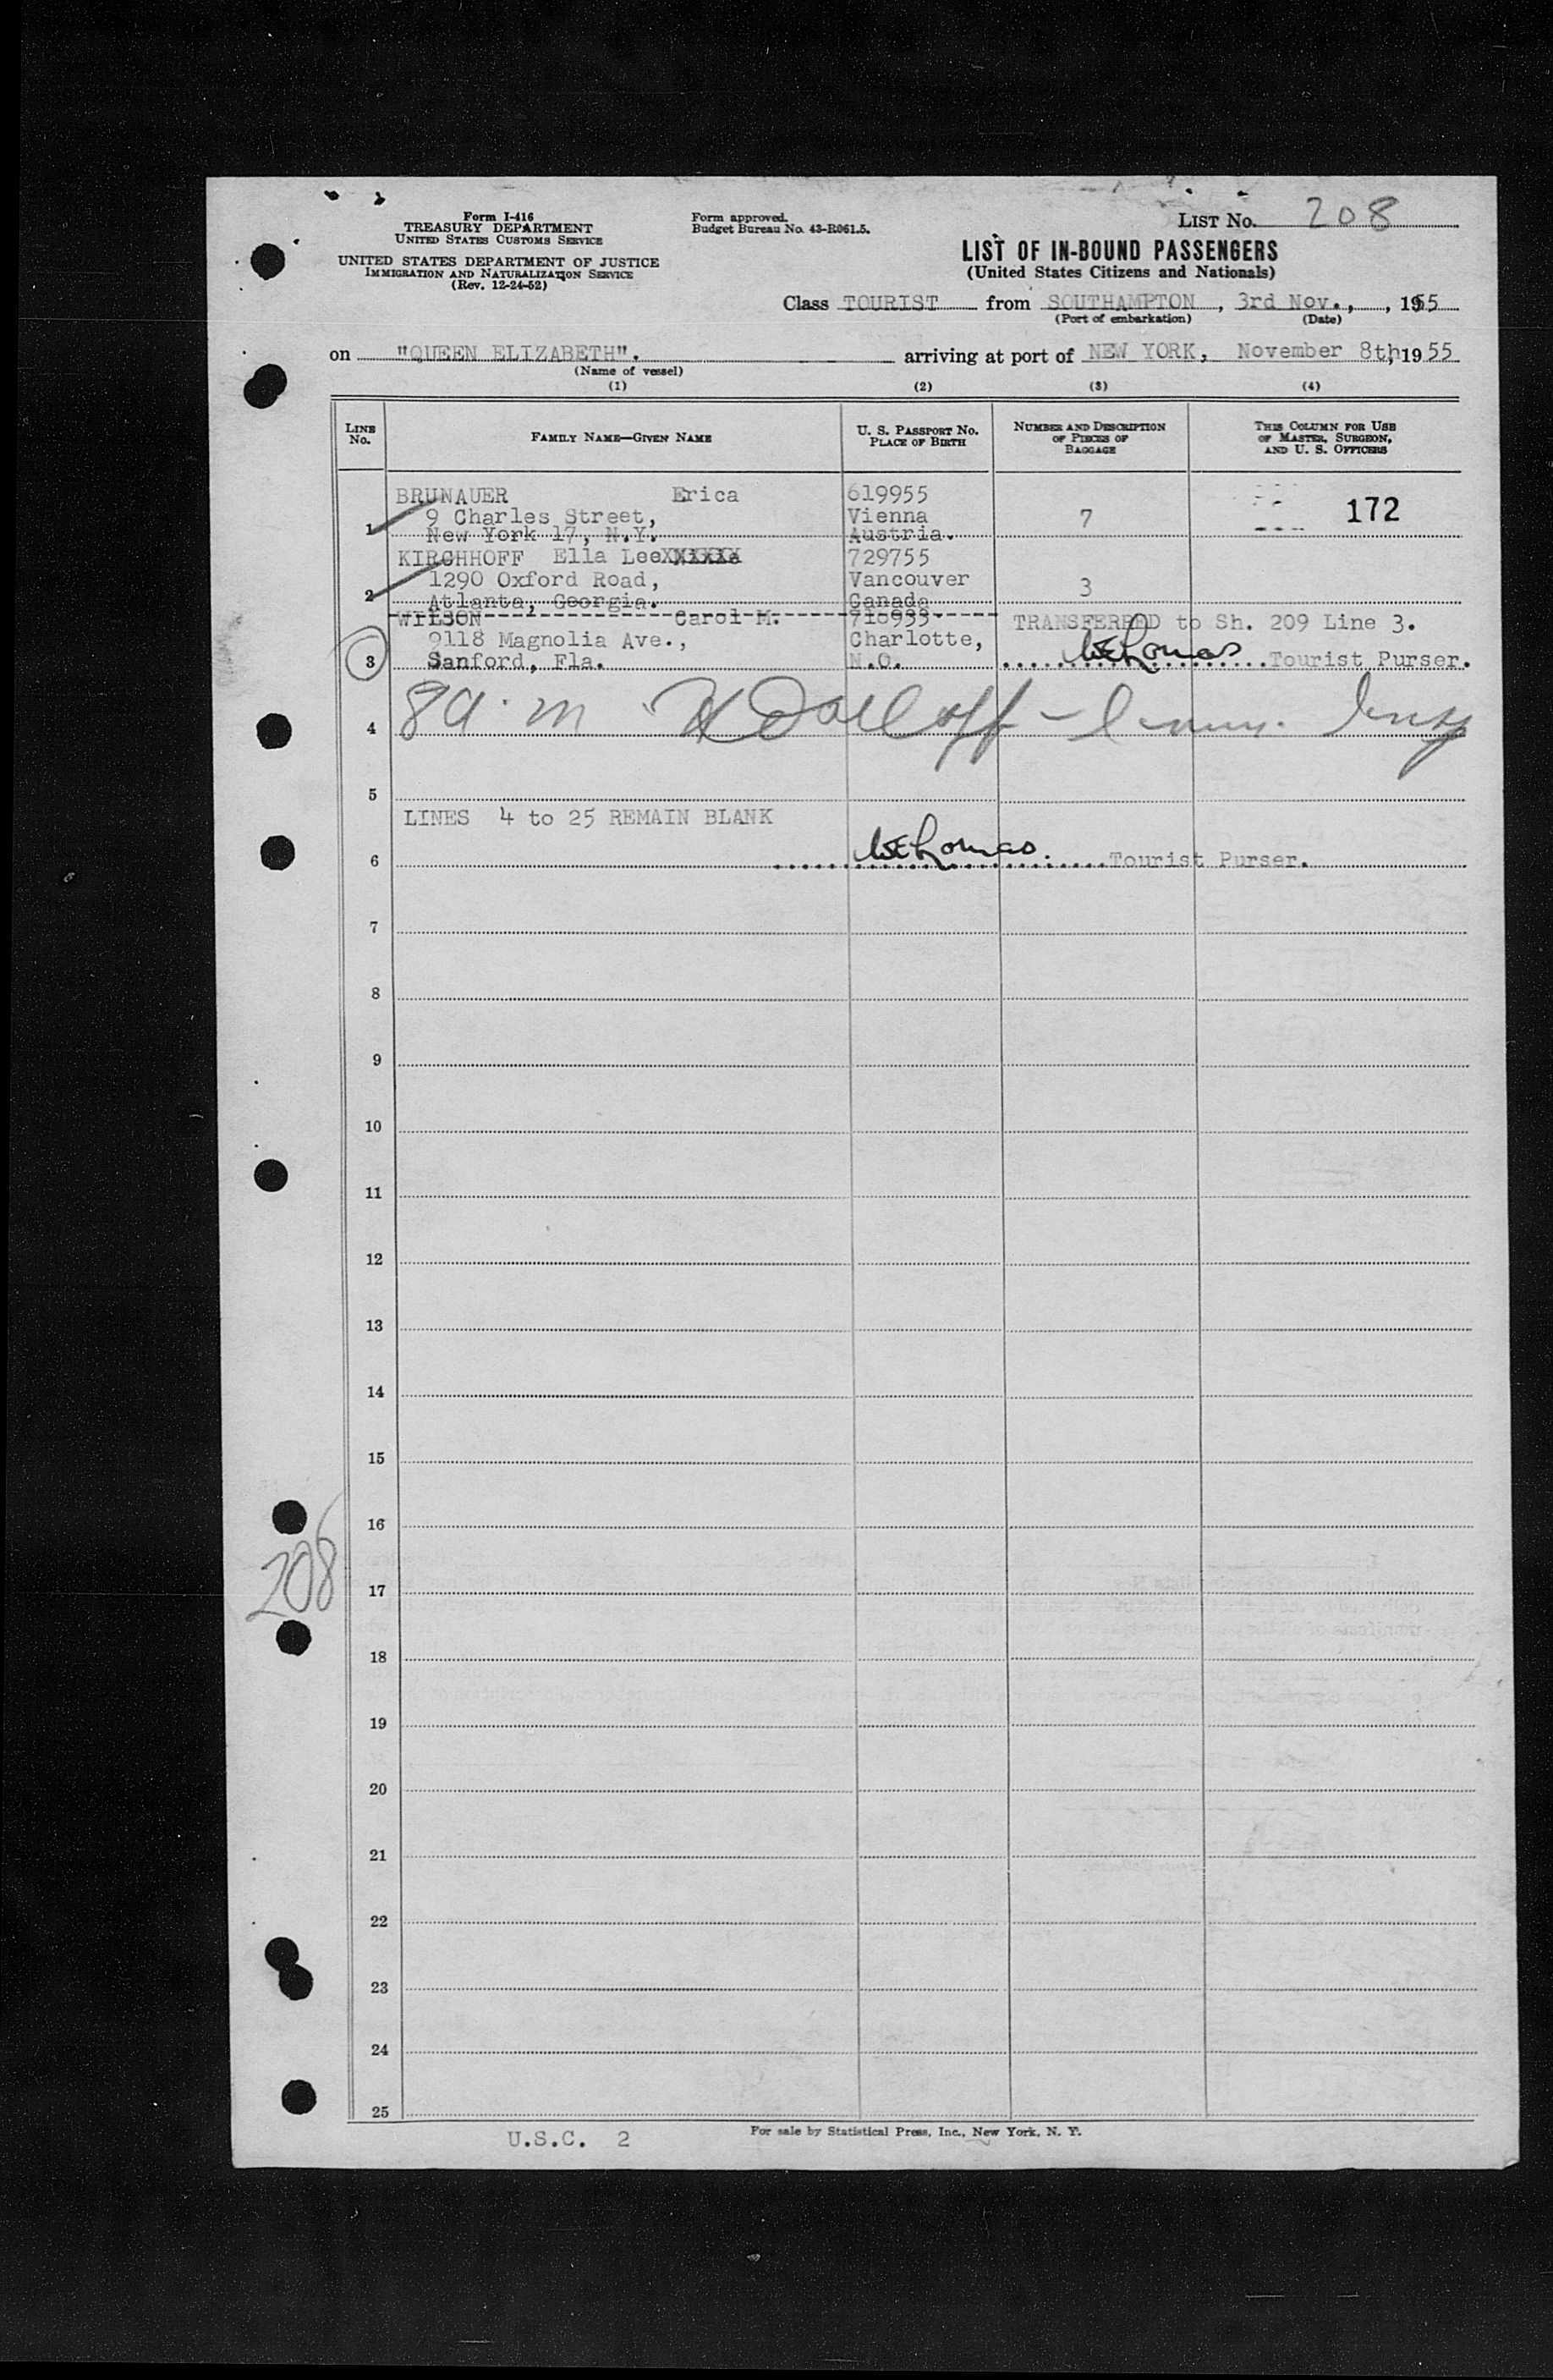 Form I-416
TREASURY DEPARTMENT
UNITED STATES CUSTOMS SERVICE
UNITED STATES DEPARTMENT OF JUSTICE
IMMIGRATION AND NATURALIZATION SERVICE
(Rev. 12-24-52)
Form approved.
Budget Bureau No. 43-R061.5.
LIST No. 208
LIST OF IN-BOUND PASSENGERS
(United States Citizens and Nationals)
Class TOURIST from SOUTHAMPTON, 3rd Nov., 1955
(Port of embarkation) (Date)
on "QUEEN ELIZABETH". arriving at port of NEW YORK, November 8th, 1955
(Name of vessel)
(1) (2) (3) (4)
LINE No. FAMILY NAME—GIVEN NAME U. S. PASSPORT No. PLACE OF BIRTH NUMBER AND DESCRIPTION OF PIECES OF BAGGAGE THIS COLUMN FOR USE OF MASTER, SURGEON, AND U. S. OFFICERS
BRUNAUER Erica 619955
9 Charles Street, Vienna 7 172
1 New York 17, N.Y. Austria.
KIRCHHOFF Ella Lee 729755
1290 Oxford Road, Vancouver 3
2 Atlanta, Georgia. Canada
WILSON Carol M. TRANSFERRED to Sh. 209 Line 3.
2118 Magnolia Ave., Charlotte,
3 Sanford, Fla. N.C. Tourist Purser.
4 8 a.m
5
LINES 4 to 25 REMAIN BLANK
6 Tourist Purser.
7
8
9
10
11
12
13
14
15
16
208
17
18
19
20
21
22
23
24
25
U.S.C. 2
For sale by Statistical Press, Inc., New York, N. Y.